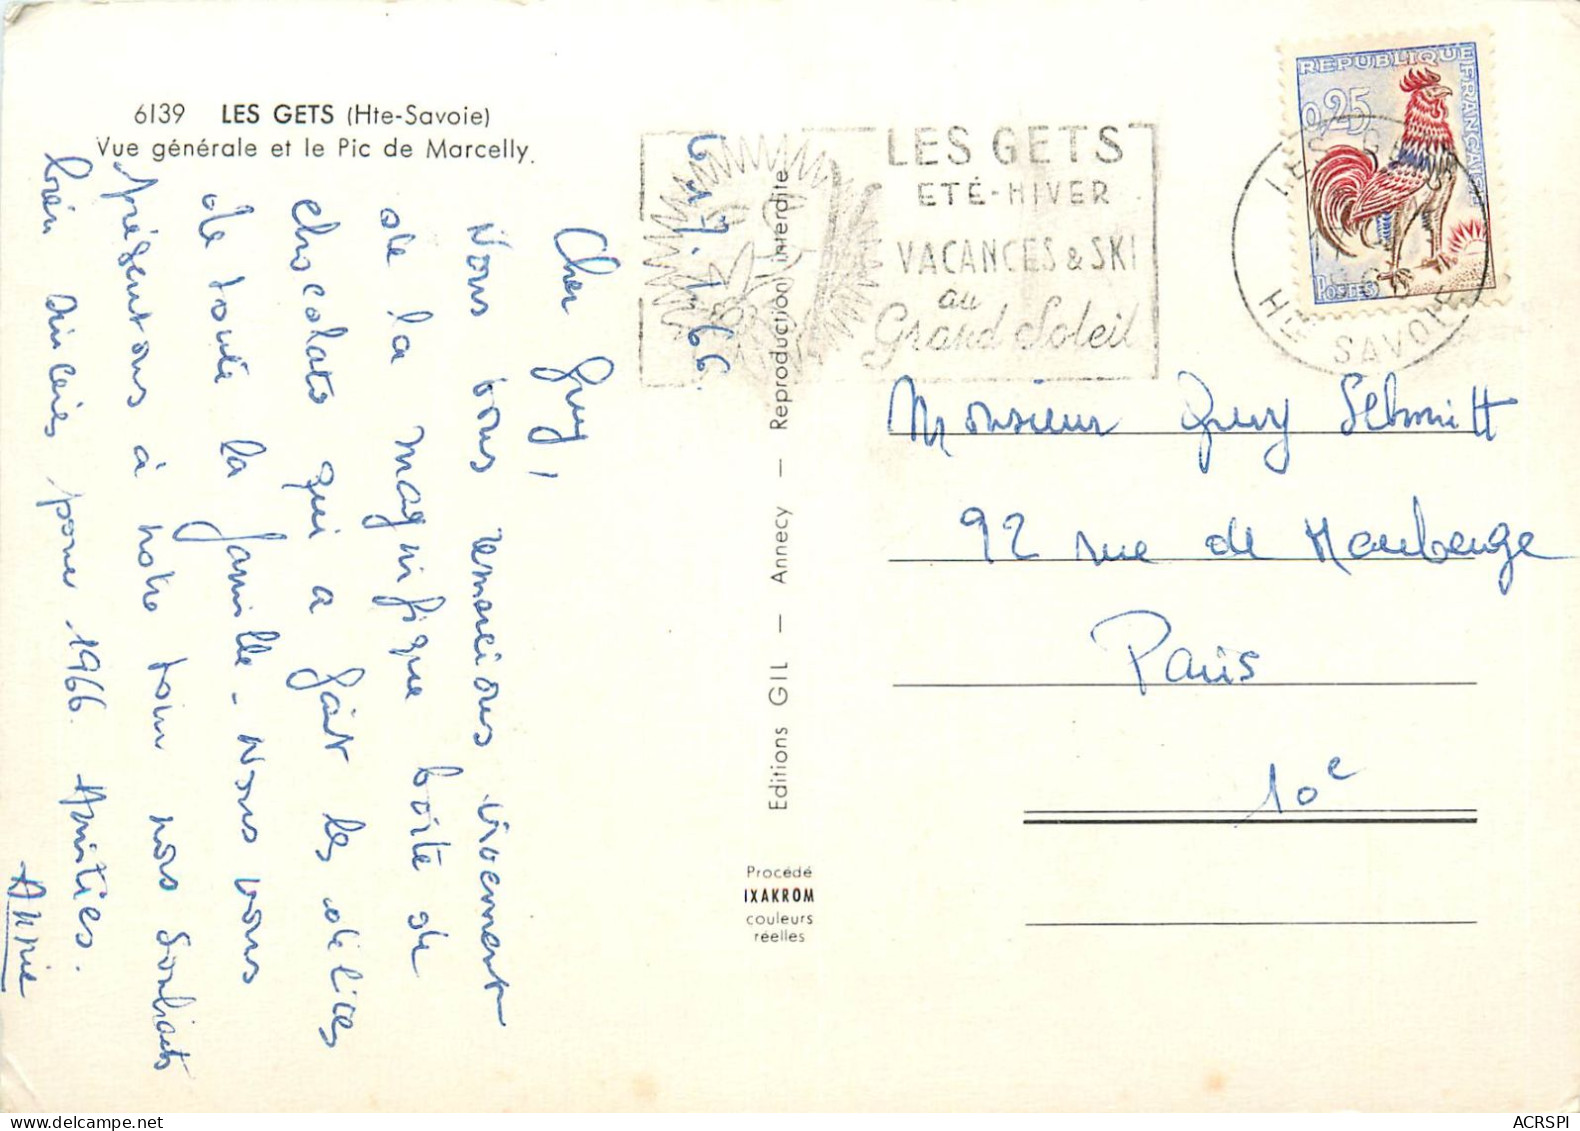 6139 LES GETS (Hte-Savoie)
Vue générale et le Pic de Marcelly.
6.1.66.
Cher Guy,
Nous vous remercions vivement
de la magnifique boîte de
chocolats qui a fait les délices
de toute la famille - Nous vous
présentons à notre tour nos souhaits
bien sincères pour 1966. Amitiés.
Annie
Editions GIL — Annecy — Reproduction interdite
Procédé
IXAKROM
couleurs
réelles
LES GETS
ETÉ-HIVER
VACANCES & SKI
au
Grand Soleil
REPUBLIQUE FRANÇAISE
0,25
POSTES
LES GETS
HTE SAVOIE
Monsieur Guy Schmitt
92 rue de Maubeuge
Paris
10e
ACRSPI